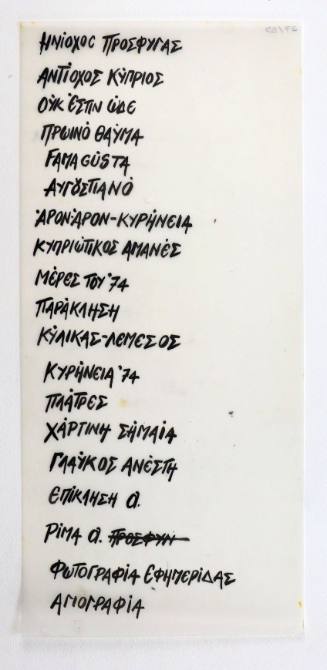 ΗΝΙΟΧΟΣ ΠΡΟΣΦΥΓΑΣ
ΑΝΤΙΟΧΟΣ ΚΥΠΡΙΟΣ
ΟΥΚ ΕΣΤΙΝ ΩΔΕ
ΠΡΩΙΝΟ ΘΑΥΜΑ
FAMAGUSTA
ΑΥΓΟΥΣΤΙΑΝΟ
ΆΡΟΝ ΆΡΟΝ-ΚΥΡΉΝΕΙΑ
ΚΥΠΡΙΩΤΙΚΟΣ ΑΜΑΝΈΣ
ΜΈΡΕΣ ΤΟΥ '74
ΠΑΡΆΚΛΗΣΗ
ΚΎΛΙΚΑΣ-ΛΕΜΕΣΟΣ
ΚΥΡΉΝΕΙΑ '74
ΠΛΆΤΡΕΣ
ΧΆΡΤΙΝΗ ΣΗΜΑΊΑ
ΓΛΑΎΚΟΣ ΑΝΈΣΤΗ
ΕΠΊΚΛΗΣΗ α.
ΡΊΜΑ α. ΠΡΟΣΦΥΝ
ΦΩΤΟΓΡΑΦΊΑ ΕΦΗΜΕΡΊΔΑΣ
ΑΓΙΟΓΡΑΦΊΑ